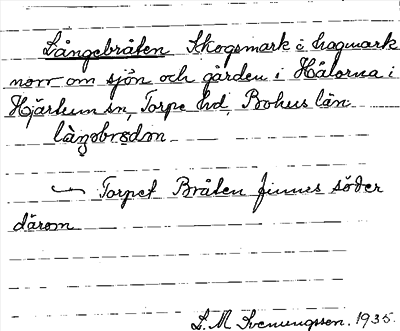 Långebråten Skogsmark i hagmark
norr om sjön och gården i Hålorna i
Hjärtum sn, Torpe hd, Bohus län
låŋobrɑ̀dn
— Torpet Bråten finnes söder
därom
L. M. Svenungsson. 1935.